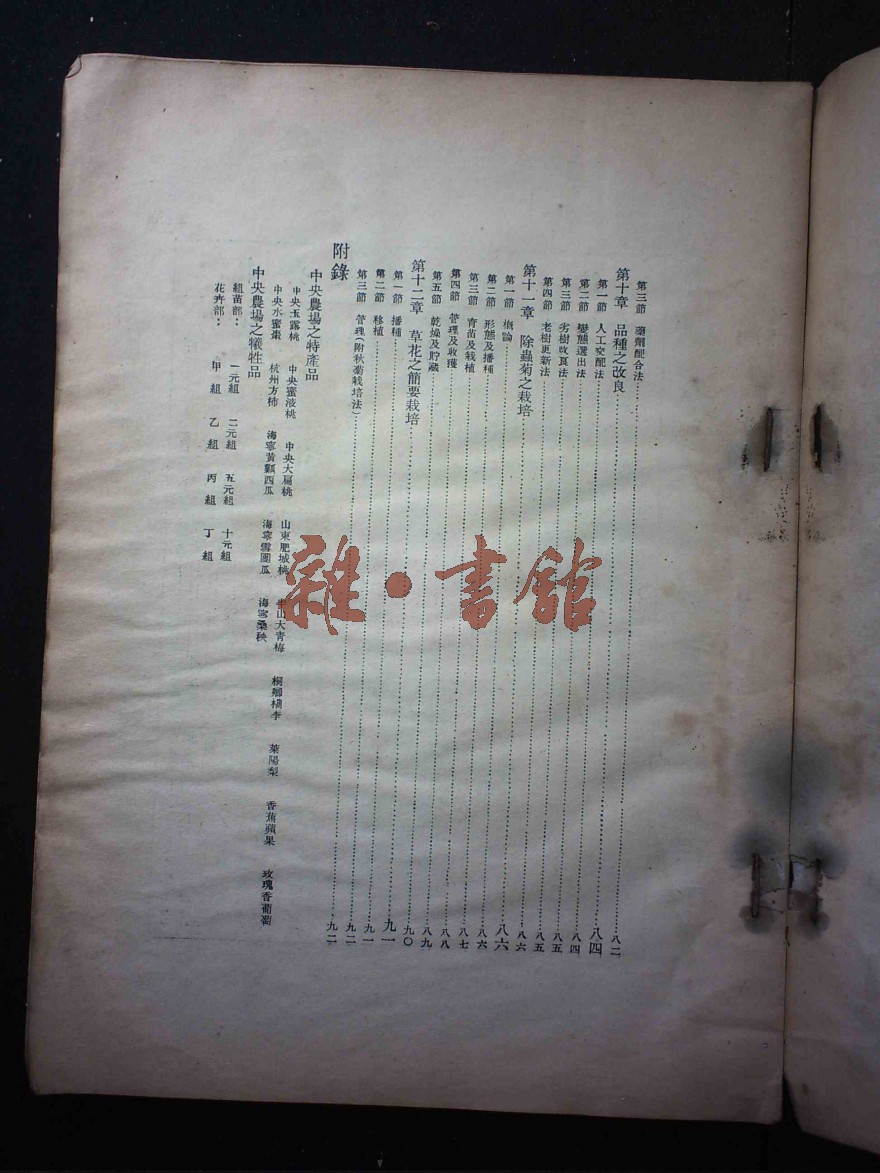 第三節 藥劑配合法……八二
第十章 品種之改良……八四
第一節 人工交配法……八四
第二節 變態選出法……八五
第三節 劣樹改良法……八五
第四節 老樹更新法……八六
第十一章 除蟲菊之栽培……八六
第一節 概論……八六
第二節 形態及播種……八七
第三節 育苗及栽植……八八
第四節 管理及收穫……八九
第五節 乾燥及貯藏……九〇
第十二章 草花之簡要栽培……九一
第一節 播種……九一
第二節 移植……九二
第三節 管理(附秋菊栽培法)……九二
附錄
中央農場之特產品
中央玉露桃 中央蜜液桃 中央大扁桃 山東肥城桃 山大青梅 桐鄉檇李 萊陽梨 香蕉蘋果 玫瑰香葡萄
中央水蜜棗 杭州方柿 海寧黃瓤西瓜 海寧雪團瓜 海寧桑秧
中央農場之犧牲品
組苗部: 一元組 二元組 五元組 十元組
花卉部: 甲組 乙組 丙組 丁組
雜·書館